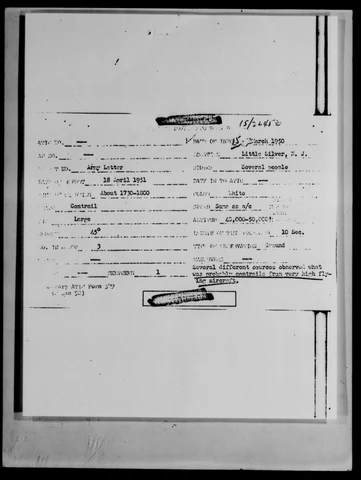 15/2245Z
ATIC NO. — DATE OF INFO 15 March 1950
AF NO. — LOCATION Little Silver, N. J.
REPORT NO. Army Letter SOURCE Several people
DATE OF REPORT 18 April 1951 DATE IN TO ATIC —
TIME OF SIGHTING About 1730-1800 COLOR White
SHAPE Contrail SPEED Same as a/c
SIZE Large ALTITUDE 40,000-50,000'
45° LENGTH OF TIME OBSERVED 10 Sec.
NO. IN GROUP 3 TYPE OF OBSERVATION Ground
— MANEUVERS —
SIGHTINGS 1 Several different sources observed what
was probable contrails from very high fly-
ing aircraft.
Temporary ATIC Form 329
52)